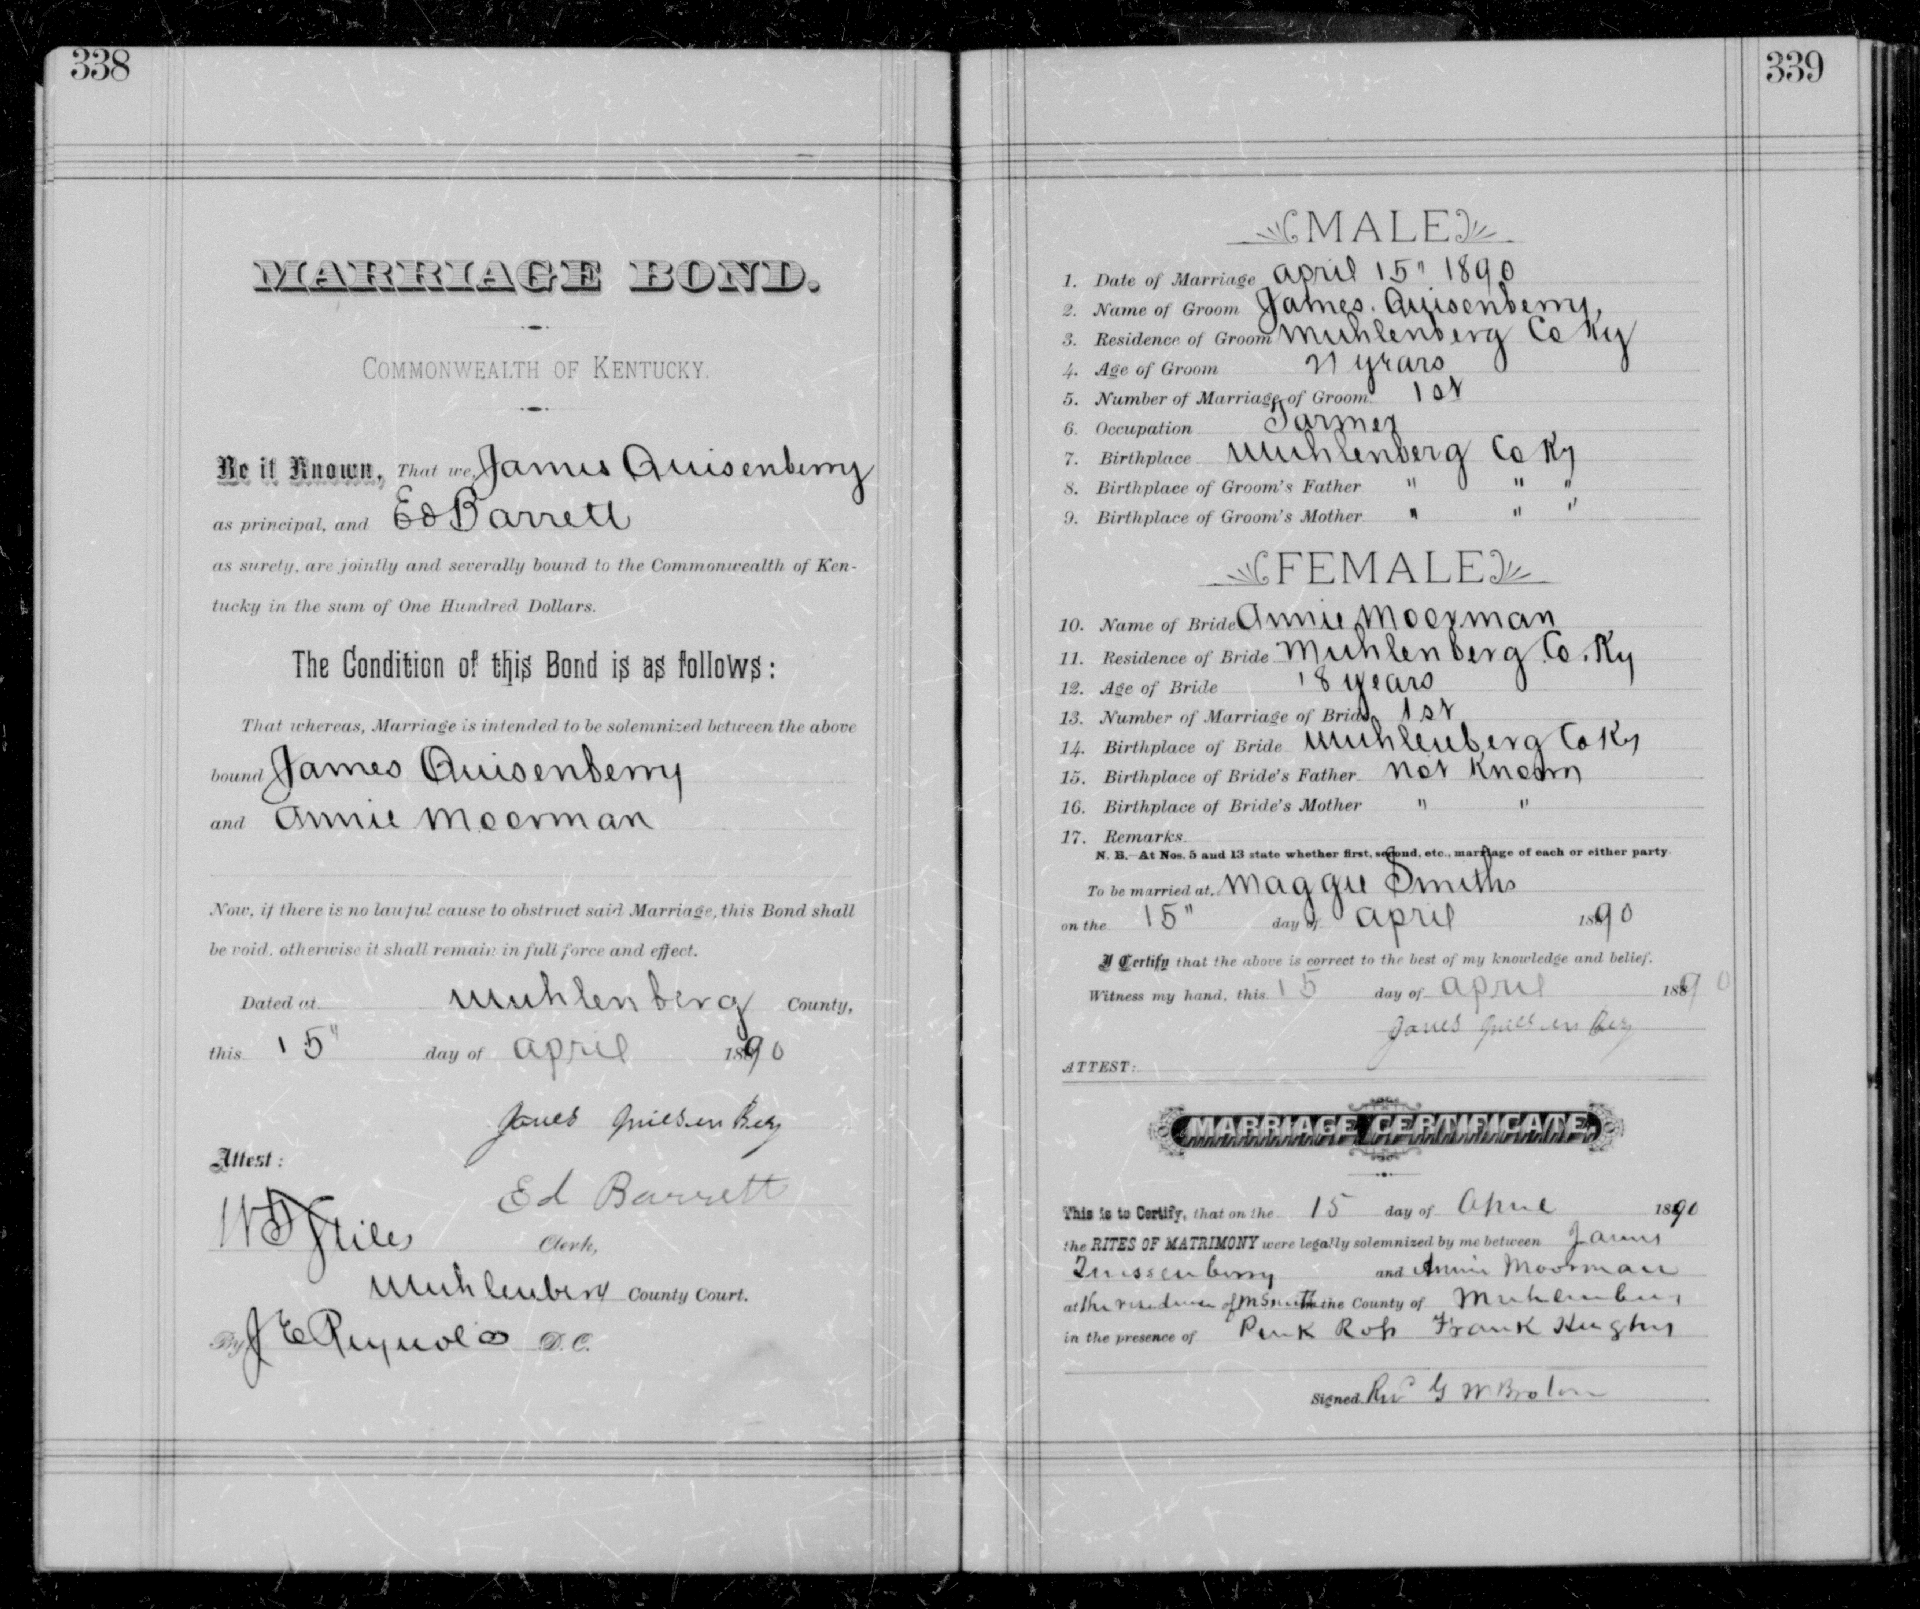 338
MARRIAGE BOND.
COMMONWEALTH OF KENTUCKY.
Be it Known, That we, James Quisenberry
as principal, and Ed Barrett
as surety, are jointly and severally bound to the Commonwealth of Ken-
tucky in the sum of One Hundred Dollars.
The Condition of this Bond is as follows:
That whereas, Marriage is intended to be solemnized between the above
bound James Quisenberry
and Annie Moorman
Now, if there is no lawful cause to obstruct said Marriage, this Bond shall
be void, otherwise it shall remain in full force and effect.
Dated at Muhlenberg County,
this 15" day of April 1890
James Quiesenbery
Attest:
Ed Barrett
Clerk,
Muhlenberg County Court.
By J E Reynolds D. C.
339
MALE
1. Date of Marriage April 15" 1890
2. Name of Groom James Quisenberry,
3. Residence of Groom Muhlenberg Co Ky
4. Age of Groom 21 years
5. Number of Marriage of Groom 1st
6. Occupation Farmer
7. Birthplace Muhlenberg Co Ky
8. Birthplace of Groom's Father " " "
9. Birthplace of Groom's Mother " " "
FEMALE
10. Name of Bride Annie Moorman
11. Residence of Bride Muhlenberg Co. Ky
12. Age of Bride 18 years
13. Number of Marriage of Bride 1st
14. Birthplace of Bride Muhlenberg Co Ky
15. Birthplace of Bride's Father not known
16. Birthplace of Bride's Mother " "
17. Remarks
N. B.—At Nos. 5 and 13 state whether first, second, etc., marriage of each or either party.
To be married at Maggie Smiths
on the 15" day of April 1890
I Certify that the above is correct to the best of my knowledge and belief.
Witness my hand, this 15 day of April 1890
James Quiesenbery
ATTEST:
MARRIAGE CERTIFICATE.
This is to Certify, that on the 15 day of April 1890
the RITES OF MATRIMONY were legally solemnized by me between James
Quissenberry and Annie Moorman
at the residence of M Smith in the County of Muhlenburg
in the presence of Pink Frank Hughes
Signed Rev G W